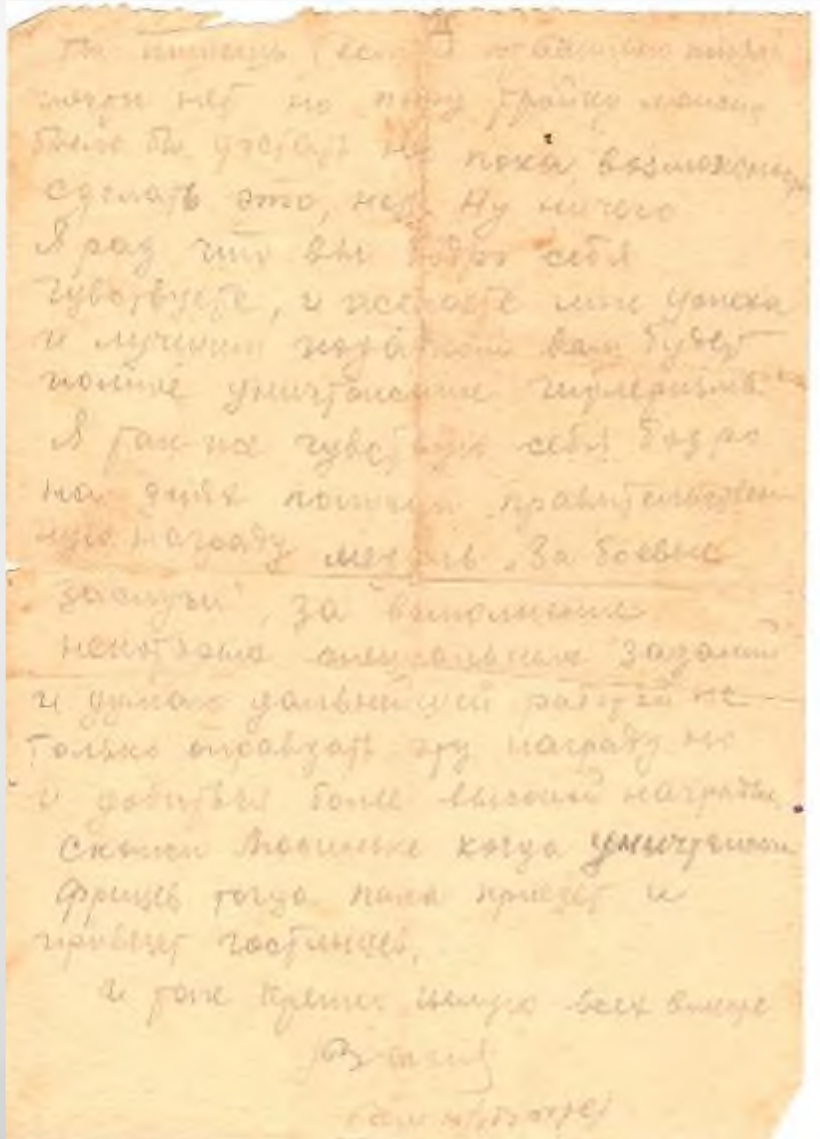 Ты пишешь, если
почти нет но пару троек можно
было бы достать но пока возможности
сделать это, нет. Ну ничего
Я рад что вы бодро себя
чувствуете, и желаете мне успеха
и лучшим подарком вам будет
полное уничтожение гитлеризма.
Я так-же чувствую себя бодро
на днях получил правительствен
ную награду медаль „За боевые
заслуги", за выполнение
некоторых специальных заданий
и думаю дальнейшей работой не
только оправдать эту награду но
и добиться более высокой награды.
Скажи когда уничтожим
фрицев тогда папа приедет и
привезет гостинцев.
и так крепко целую всех вместе